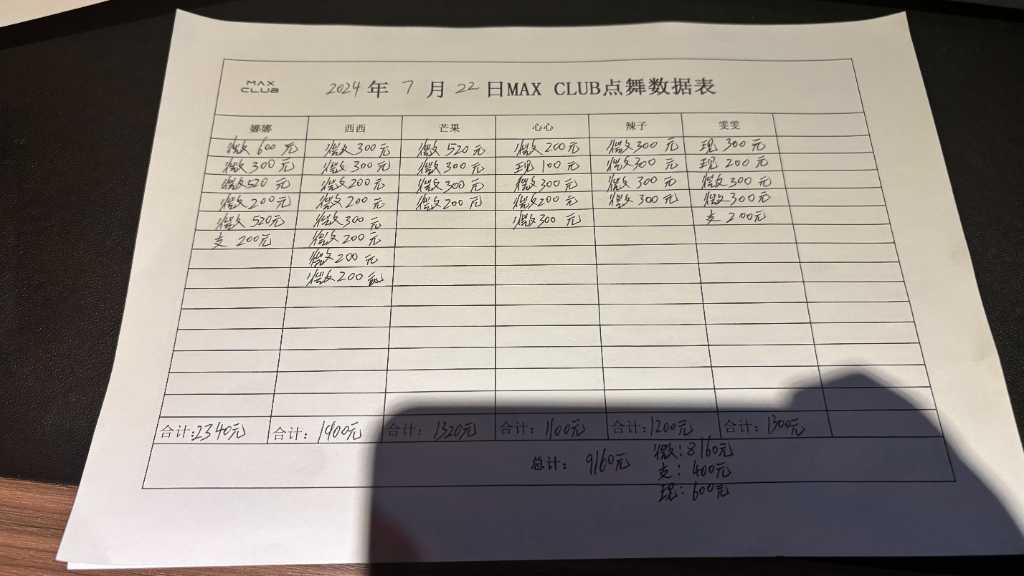 MAX
CLUB
2024年 7 月 22 日MAX CLUB点舞数据表
娜娜 西西 芒果 心心 辣子 雯雯
微600元 微300元 微520元 微200元 微300元 现300元
微300元 微300元 微300元 现100元 微300元 现200元
微520元 微200元 微300元 微300元 微300元 微300元
微200元 微200元 微200元 微200元 微300元 微300元
微520元 微300元 微300元 支200元
支200元 微200元
微200元
微200元
合计:2340元 合计:1900元 合计:1320元 合计:1100元 合计:1200元 合计:1300元
总计: 9160元 微:8160元
支:400元
现:600元